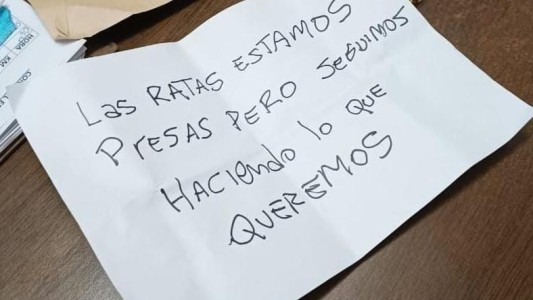 Las RATAS ESTAMOS
PresAS PERO SeGUIMOS
HACIeNDo lo QUE
QUEREMOS